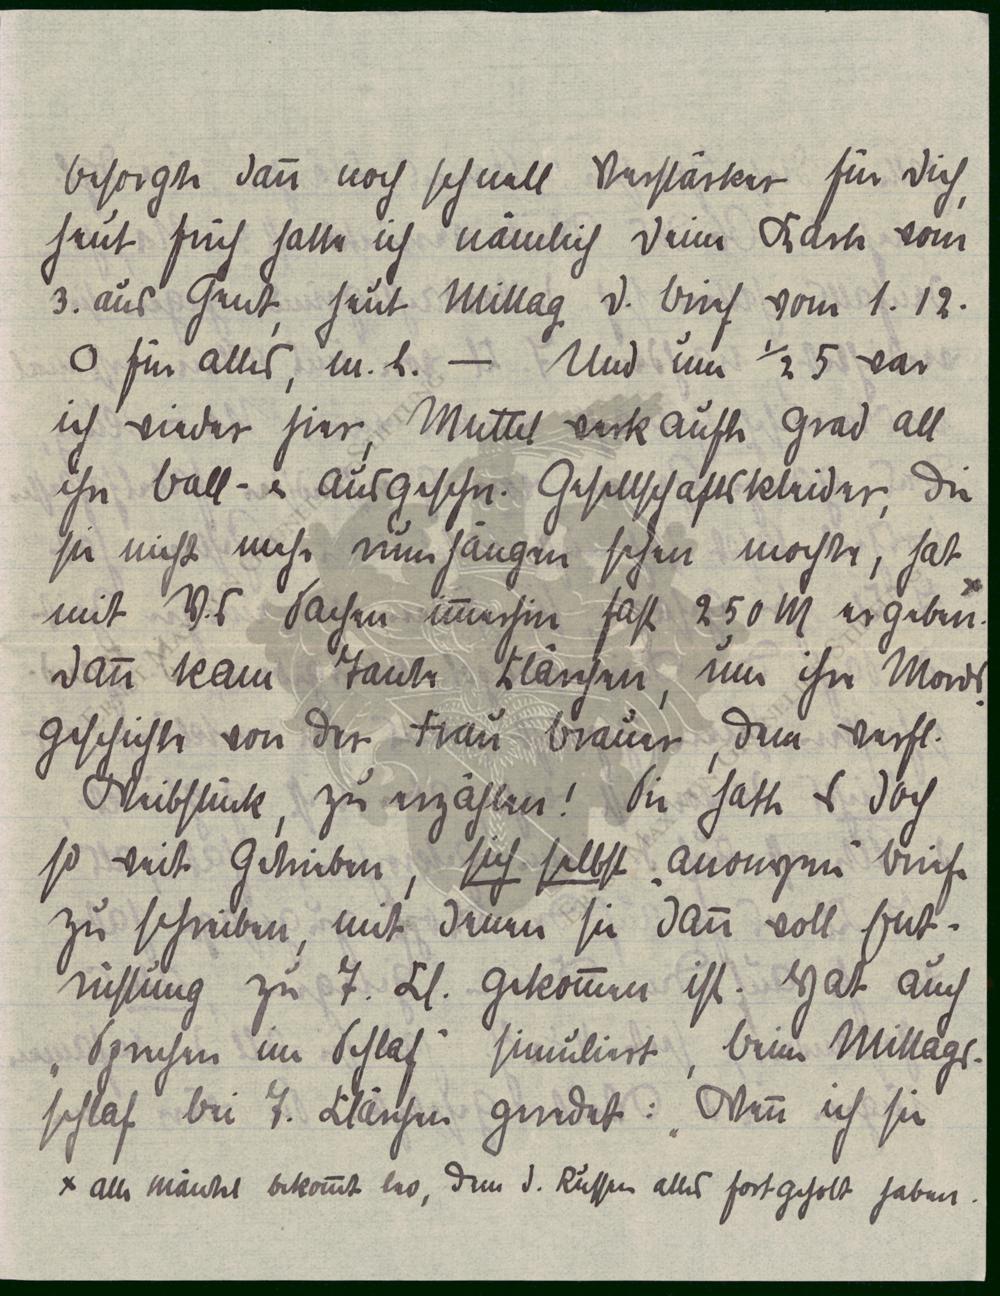 besorgte dann noch schnell Verstärker für Dich,
heut früh hatte ich nämlich Deine Karte vom
3. aus Gent, heut Mittag d. Brief vom 1. 12.
O für alles, m. L. — Und um ½ 5 war
ich wieder hier, Muttel verkaufte grad all
ihre Ball- & ausgeschn. Gesellschaftskleider, die
sie nicht mehr rumhängen sehen mochte, hat
mit V.s Sachen immerhin fast 250 M ergeben. x
Dann kam Tante Klärchen, um ihre Mords-
geschichte von der Frau Brauer, dem verfl.
Weibstück, zu erzählen! Die hatte es doch
so weit getrieben, sich selbst „anonyme" Briefe
zu schreiben, mit denen sie dann voll Ent-
rüstung zu T. Kl. gekommen ist. Hat auch
„Sprechen im Schlaf" simuliert, beim Mittags-
schlaf bei T. Klärchen geredet: „Wenn ich sie
x alle Mäntel bekommt Leo, dem d. Russen alles fortgeholt haben.